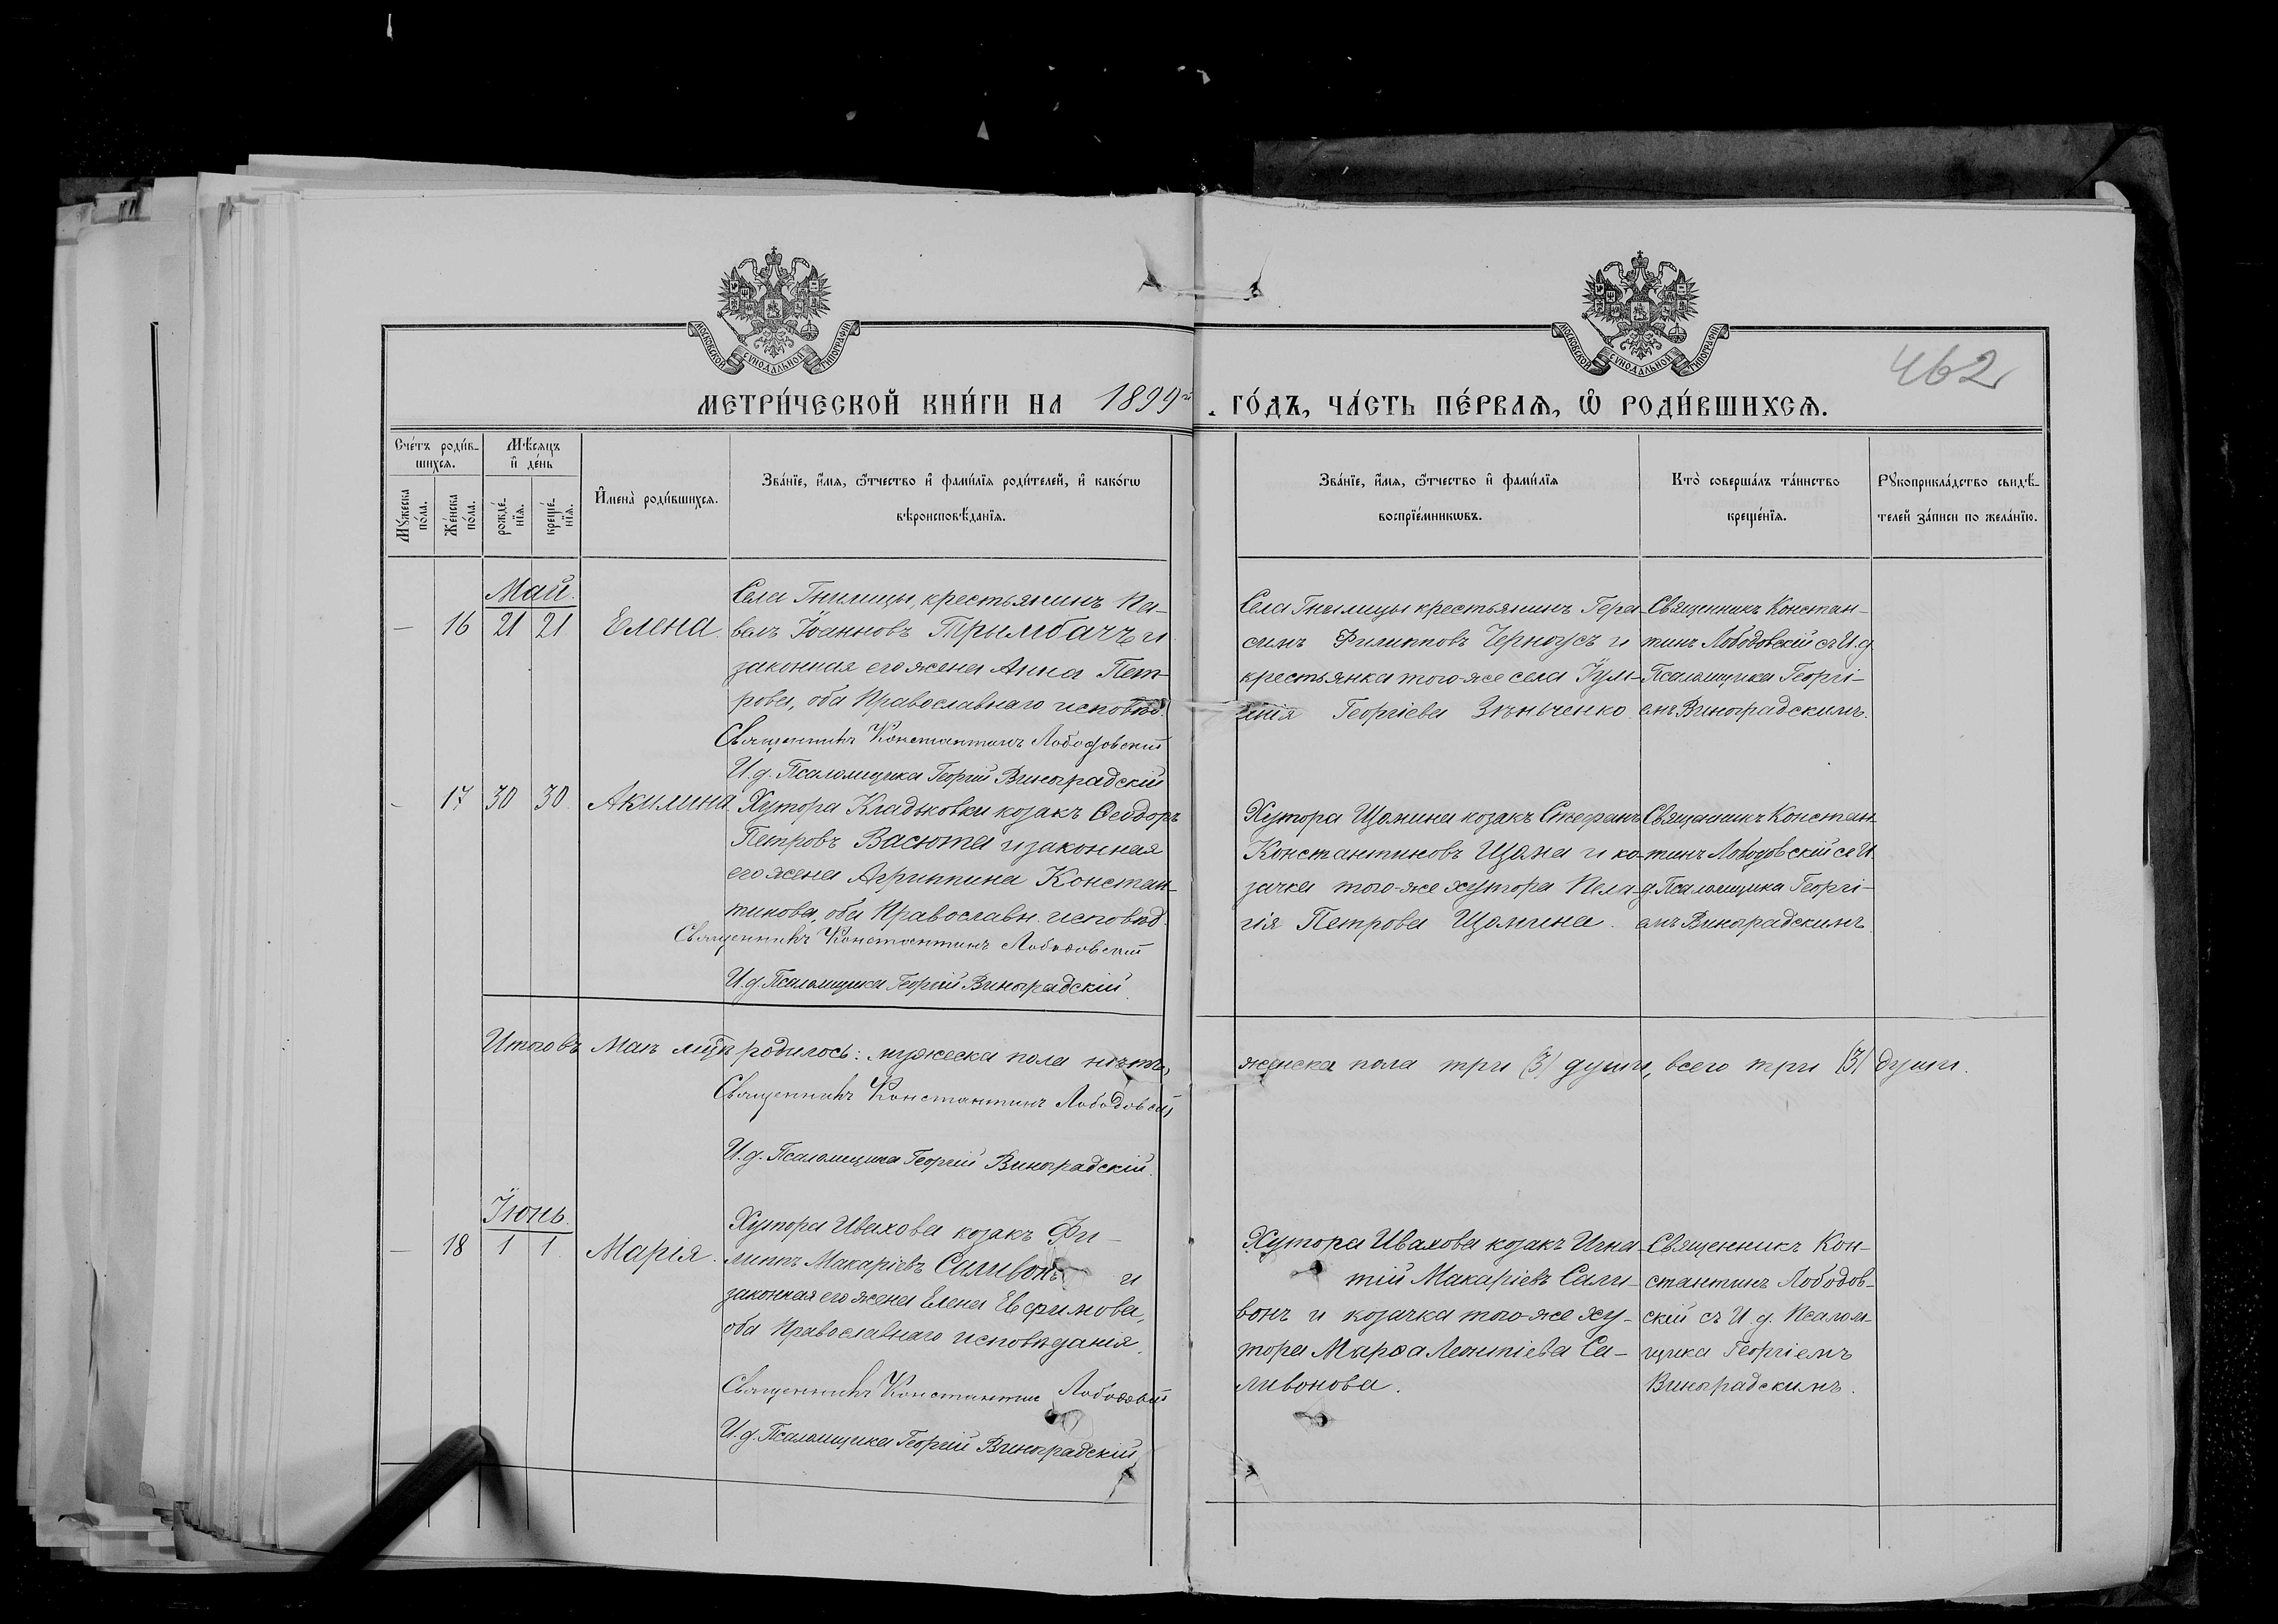 МОСКОВСКОЙ СУНОДАЛЬНОЙ ТИПОГРАФІИ
МОСКОВСКОЙ СУНОДАЛЬНОЙ ТИПОГРАФІИ
462
МЕТРИ́ЧЕСКОЙ КНИ́ГИ НА 1899й ГО́ДЪ, ЧА́СТЬ ПЕ́РВАЯ, Ѡ҆ РОДИ́ВШИХСѦ.
Сче́тъ роди́в-
шихсѧ.
Мѣ́сяцъ
и҆ де́нь
Мꙋ́жеска
по́ла.
Же́нска
по́ла.
рожде́-
нїѧ.
креще́-
нїѧ.
И҆мена̀ роди́вшихсѧ.
Зва́нїе, и҆́мѧ, ѻ҆́тчество и҆ фами́лїѧ роди́телей, и҆ како́гѡ
вѣроисповѣ́данїѧ.
Зва́нїе, и҆́мѧ, ѻ҆́тчество и҆ фами́лїѧ
воспрїе́мникѡвъ.
Кто̀ соверша́лъ та́инство
креще́нїѧ.
Рꙋкоприкла́дство свидѣ́-
телей за́писи по жела́нїю.
Май.
— 16 21 21 Елена.
Села Гнилицы, крестьянинъ Па-
велъ Іоанновъ Трымбачъ и
законная его жена Анна Пет-
рова, оба Православнаго исповѣд.
Священникъ Константинъ Лободовскій
И. д. Псаломщика Георгій Виноградскій
Села Гнилицы крестьянинъ Гера-
симъ Филипповъ Черноусъ и
крестьянка того-же села Іули-
анія Георгіева Зѣньченко
Священникъ Констан-
тинъ Лободовскій съ И. д.
Псаломщика Георгі-
емъ Виноградскимъ.
- 17 30 30 Акилина
Хутора Кладьковки козакъ Ѳеодоръ
Петровъ Васюта и законная
его жена Агриппина Констан-
тинова, оба Православн. исповѣд.
Священникъ Константинъ Лободовскій
И. д. Псаломщика Георгій Виноградскій.
Хутора Цюмина козакъ Стефанъ
Константиновъ Цюма и ко-
зачка того-же хутора Пела-
гія Петрова Цюмина.
Священникъ Констан-
тинъ Лободовскій съ И.
д. Псаломщика Георгі-
емъ Виноградскимъ.
Итого въ Маѣ мцѣ родилось: мужеска пола нѣтъ, женска пола три (3) души, всего три (3) души.
Священникъ Константинъ Лободовскій
И. д. Псаломщика Георгій Виноградскій.
Іюнь.
— 18 1 1 Марія.
Хутора Ивахова козакъ Фи-
липпъ Макаріевъ Саливонъ и
законная его жена Елена Евфимова,
оба Православнаго исповѣданія.
Священникъ Константинъ Лободовскій
И. д. Псаломщика Георгій Виноградскій.
Хутора Ивахова козакъ Игна-
тій Макаріевъ Сали-
вонъ и козачка того-же ху-
тора Марѳа Леонтіева Са-
ливонова.
Священникъ Кон-
стантинъ Лободов-
скій съ И. д. Псалом-
щика Георгіемъ
Виноградскимъ.